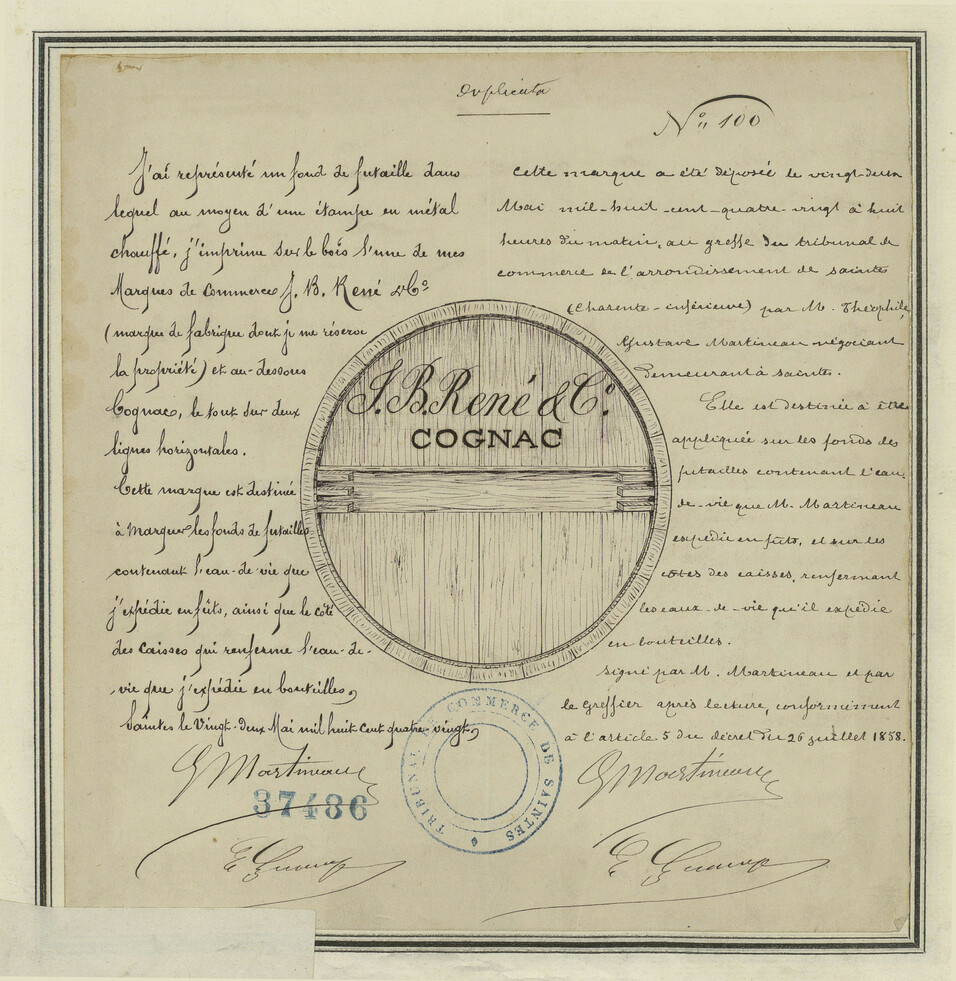 Duplicata
N° 100
J'ai représenté un fond de futaille dans
lequel au moyen d'une étampe en métal
chauffé, j'imprime sur le bois l'une de mes
Marques de Commerce J. B. René & Co
(marque de fabrique dont je me réserve
la propriété) et au-dessous
Cognac, le tout sur deux
lignes horizontales.
Cette marque est destinée
à Marquer les fonds de futailles
contenant l'eau-de-vie que
j'expédie en fûts, ainsi que le côté
des Caisses qui renferme l'eau-de-
vie que j'expédie en bouteilles,
Saintes le Vingt-deux Mai mil huit Cent quatre-vingt,
G Martineau
37486
J. B. René & Co.
COGNAC
Cette marque a été déposée le vingt-deux
Mai mil-huit-cent-quatre-vingt à huit
heures du matin, au greffe du tribunal de
commerce de l'arrondissement de Saintes
(Charente-inférieure) par M. Théophile,
Gustave Martineau négociant
demeurant à Saintes.
Elle est destinée à être
appliquée sur les fonds des
futailles contenant l'eau-
de-vie que M. Martineau
expédie en fûts, et sur les
côtés des caisses, renfermant
les eaux-de-vie qu'il expédie
en bouteilles.
Signé par M. Martineau et par
le Greffier après lecture, conformément
à l'article 5 du décret du 26 juillet 1858.
G Martineau
TRIBUNAL DE COMMERCE DE SAINTES